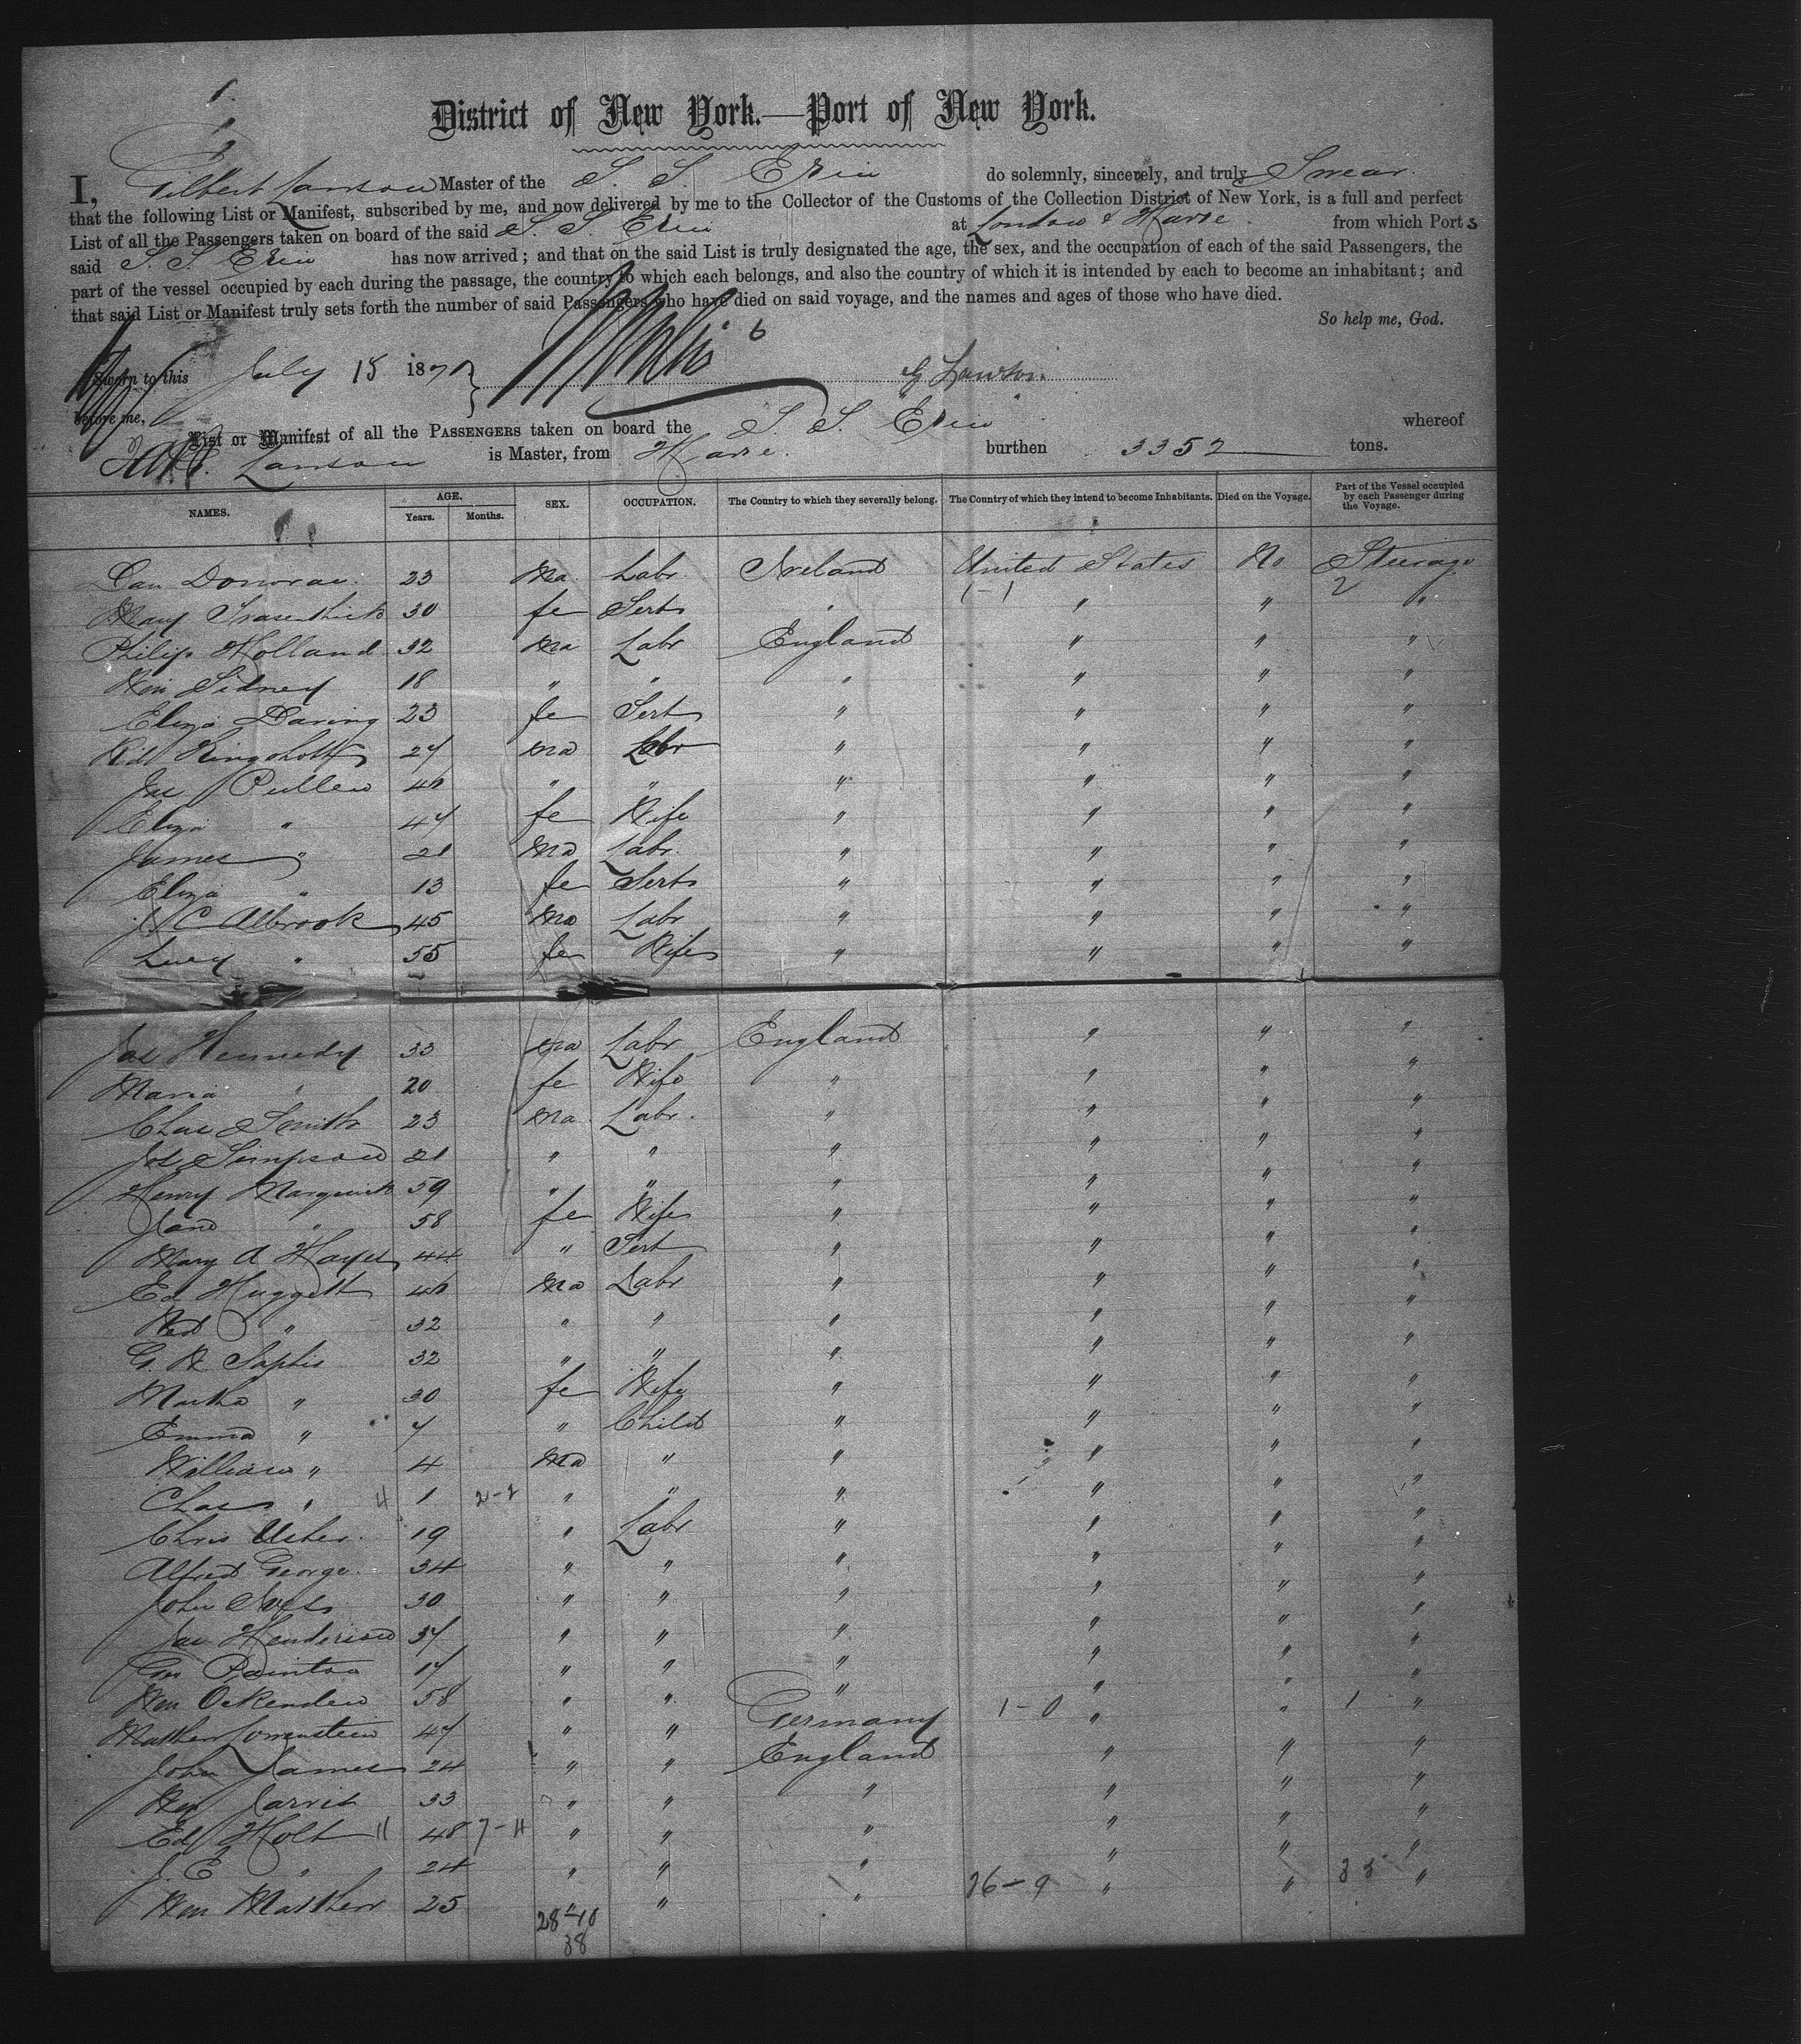 1.
District of New York.—Port of New York.
I, Gilbert Lawson Master of the S. S. Erin do solemnly, sincerely, and truly Swear
that the following List or Manifest, subscribed by me, and now delivered by me to the Collector of the Customs of the Collection District of New York, is a full and perfect
List of all the Passengers taken on board of the said S. S. Erin at London & Havre from which Ports
said S. S. Erin has now arrived; and that on the said List is truly designated the age, the sex, and the occupation of each of the said Passengers, the
part of the vessel occupied by each during the passage, the country to which each belongs, and also the country of which it is intended by each to become an inhabitant; and
that said List or Manifest truly sets forth the number of said Passengers who have died on said voyage, and the names and ages of those who have died.
So help me, God.
Sworn to this July 15 1871 G Lawson
before me,
List or Manifest of all the PASSENGERS taken on board the S. S. Erin whereof
Lawson is Master, from Havre. burthen 3352 tons.
NAMES. AGE. Years. Months. SEX. OCCUPATION. The Country to which they severally belong. The Country of which they intend to become Inhabitants. Died on the Voyage. Part of the Vessel occupied by each Passenger during the Voyage.
Dan Donovan 23 Ma Labr Ireland United States No Steerage
Mary 30 fe Servt " " " "
1-1 2
Philip Holland 32 Ma Labr England " " "
Wm Sidney 18 " " " " " "
Eliza Daring 23 fe Servt " " " "
27 Ma Labr " " " "
Jas Pullen 40 " " " " " "
Eliza " 47 fe Wife " " " "
James " 21 Ma Labr " " " "
Eliza " 13 fe Servt " " " "
J C Albrook 45 Ma Labr " " " "
Lucy " 55 fe Wife " " " "
Jas Kennedy 33 Ma Labr England " " "
Maria " 20 fe Wife " " " "
Chas Smith 23 Ma Labr. " " " "
Jos Simpson 21 " " " " " "
Henry 59 " " " " " "
Jane " 58 fe Wife " " " "
Mary A Hayes 44 " Servt " " " "
Ed Huggett 40 Ma Labr " " " "
" 32 " " " " " "
G. W 32 " " " " " "
Martha " 30 fe Wife " " " "
Emma " 7 " Child " " " "
William " 4 Ma " " " " "
Chas " 4 1 2-2 " " " " " "
Chris Usher 19 " Labr " " " "
Alfred George 34 " " " " " "
John Ives 30 " " " " " "
Jas Henderson 37 " " " " " "
Geo 17 " " " " " "
Wm Ockenden 58 " " " " " "
Mathew Lowenstein 47 " " Germany 1-0 " " 1 "
John James 24 " " England " " "
Wm Jarvis 33 " " " " " "
Ed Holt 11 48 7-11 " " " " " "
J. E " 24 " " " " " "
Wm Mathew 25 " " " 26-9 " " 35 "
28-10
38